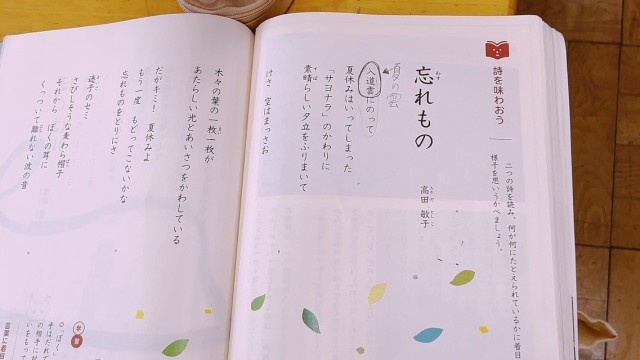 詩を味わおう
二つの詩を読み、何が何にたとえられているかに着目
様子を思いうかべましょう。
忘れもの
わす
高田 敏子
たか だ とし こ
夏の雲
入道雲にのって
夏休みはいってしまった
「サヨナラ」のかわりに
素晴らしい夕立をふりまいて
す ば
けさ 空はまっさお
木々の葉の一枚一枚が
まい まい
あたらしい光とあいさつをかわしている
だがキミ! 夏休みよ
もう一度 もどってこないかな
忘れものをとりにさ
迷子のセミ
まいご
さびしそうな麦わら帽子
それから ぼくの耳に
くっついて離れない波の音
学習
「ぼく」